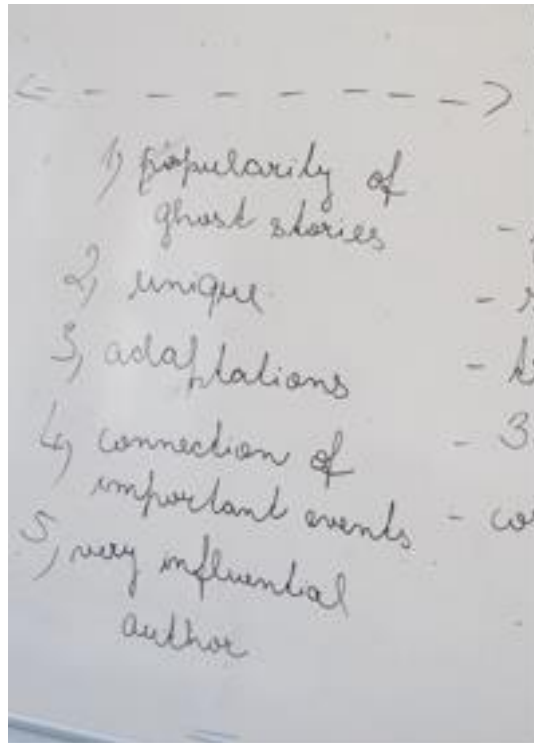 1, popularity of
ghost stories
2, unique
3, adaptations
4, connection of
important events
5, very influential
author
-
-
-
- 3
- co